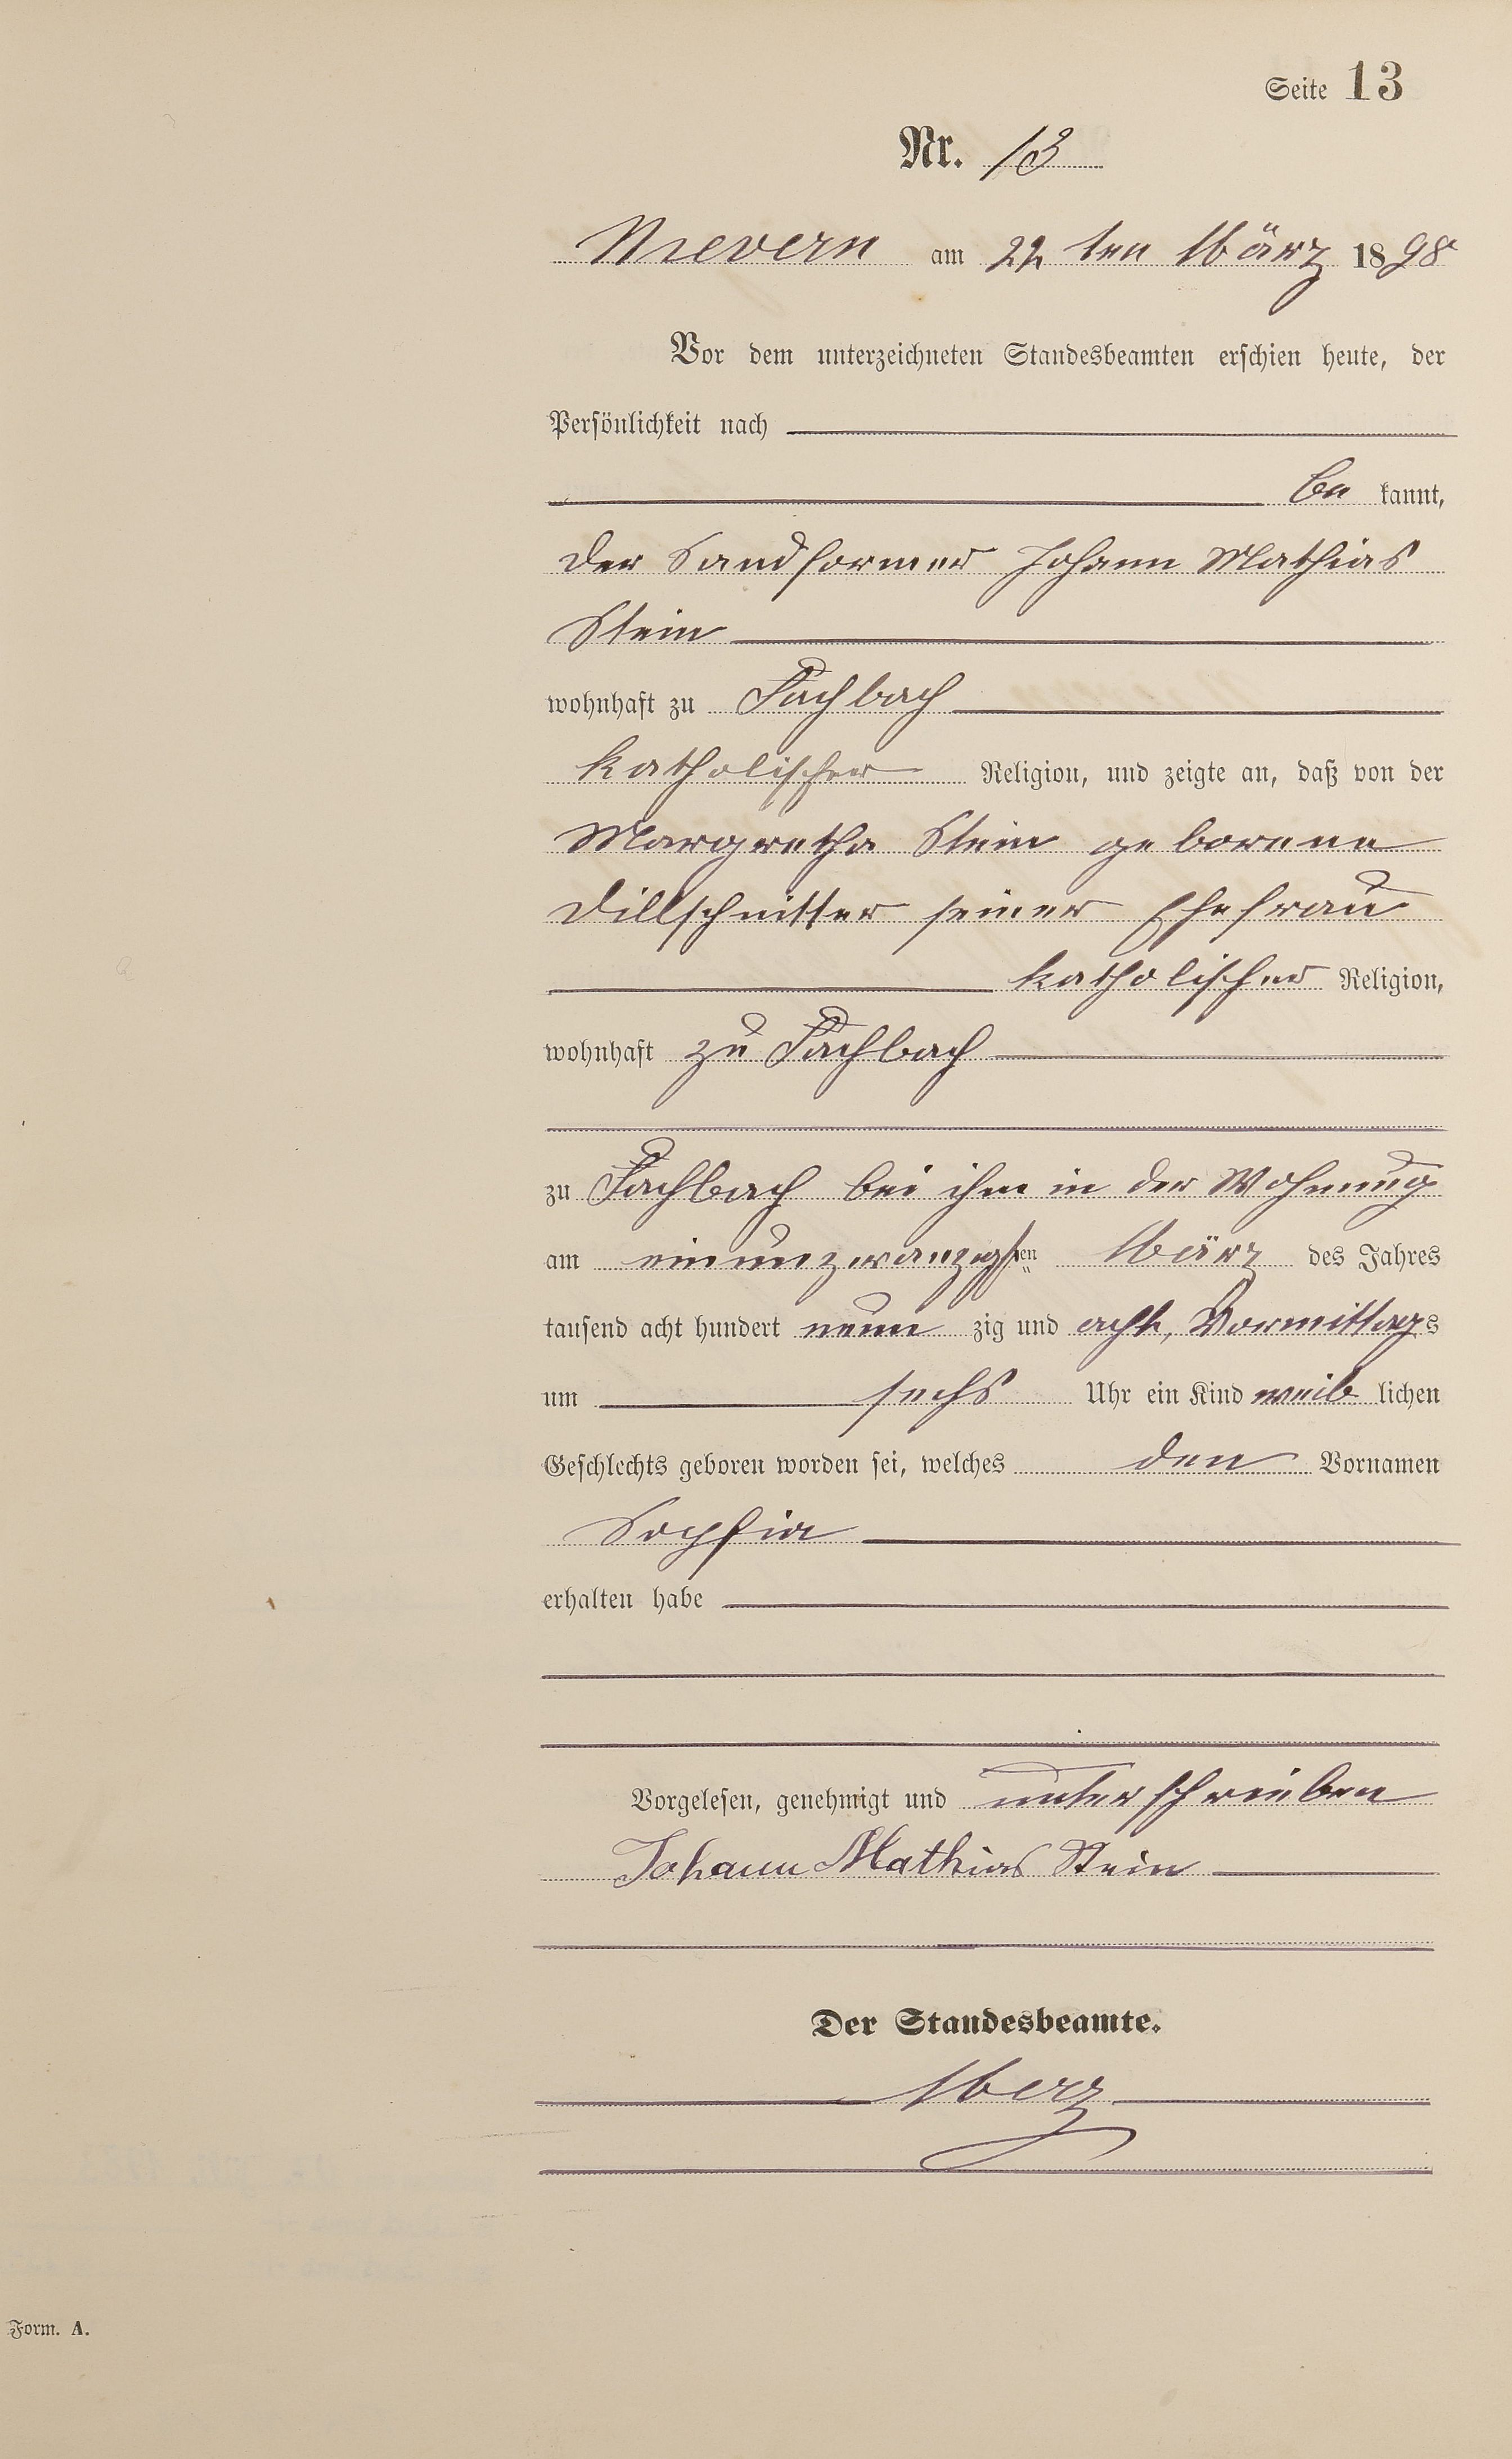 Seite 13
Nr. 13
Nievern am 22 ten März 1898
Vor dem unterzeichneten Standesbeamten erschien heute, der
Persönlichkeit nach
be kannt,
der Sandformer Johann Mathias
Stein
wohnhaft zu Fachbach
katholischer Religion, und zeigte an, daß von der
Margretha Stein geborene
Dillschnitter seiner Ehefrau
katholischer Religion,
wohnhaft zu Fachbach
zu Fachbach bei ihm in der Wohnung
am einunzwanzigsten März des Jahres
tausend acht hundert neun zig und acht, Vormittags
um sechs Uhr ein Kind weib lichen
Geschlechts geboren worden sei, welches den Vornamen
Sophia
erhalten habe
Vorgelesen, genehmigt und unterschrieben
Johann Mathias Stein
Der Standesbeamte.
Merz
Form. A.